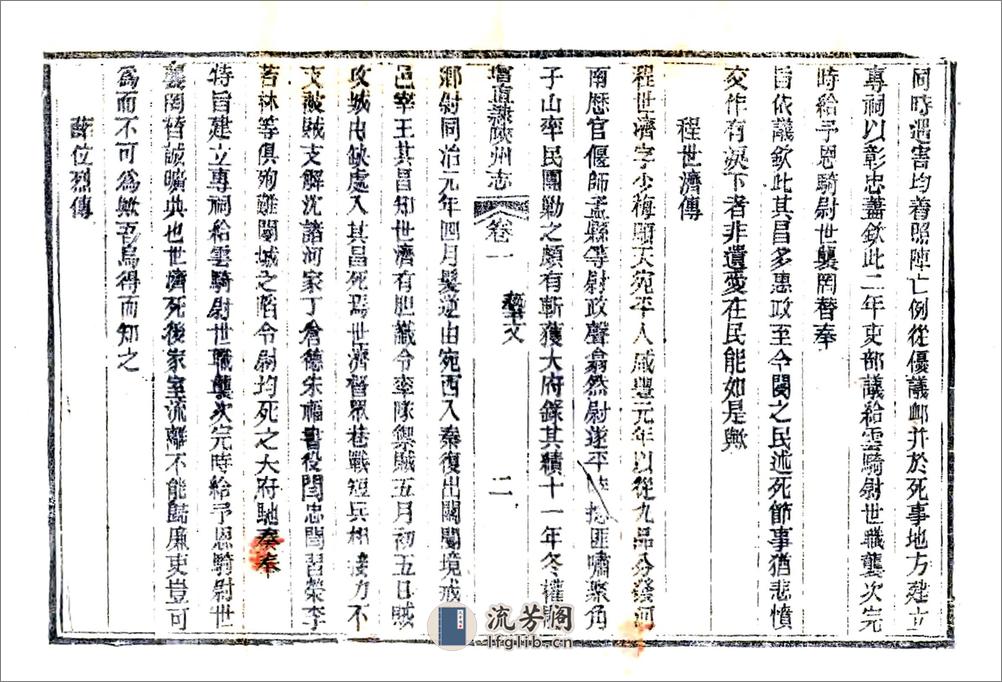 同時遇害均着照陣亡例從優議卹并於死事地方建立
專祠以彰忠藎欽此二年吏部議給雲騎尉世職襲次完
時給予恩騎尉世襲罔替奉
旨依議欽此其昌多惠政至今閿之民述死節事猶悲憤
交作有淚下者非遺愛在民能如是歟
程世濟傳
程世濟字少梅順天宛平人咸豐元年以從九品分發河
南歷官偃師孟縣等尉政聲翕然尉遂平時捻匪嘯聚角
子山率民團勦之頗有斬獲大府錄其積十一年冬權
直隸陝州志 卷一 藝文 二
鄉尉同治元年四月髮逆由宛西入秦復出關閿境戒
邑宰王其昌知世濟有胆識令率隊禦賊五月初五日賊
攻城由缺處入其昌死焉世濟督眾巷戰短兵相接力不
支被賊支解沈諸河家丁倉德朱福書役閻忠閻習榮李
若林等俱殉難閿城之陷令尉均死之大府馳奏奉
特旨建立專祠給雲騎尉世職襲次完時給予恩騎尉世
襲罔替誠曠典也世濟死後家室流離不能歸廉吏豈可
為而不可為歟吾烏得而知之
薛位烈傳
流芳阁
lfglib.com